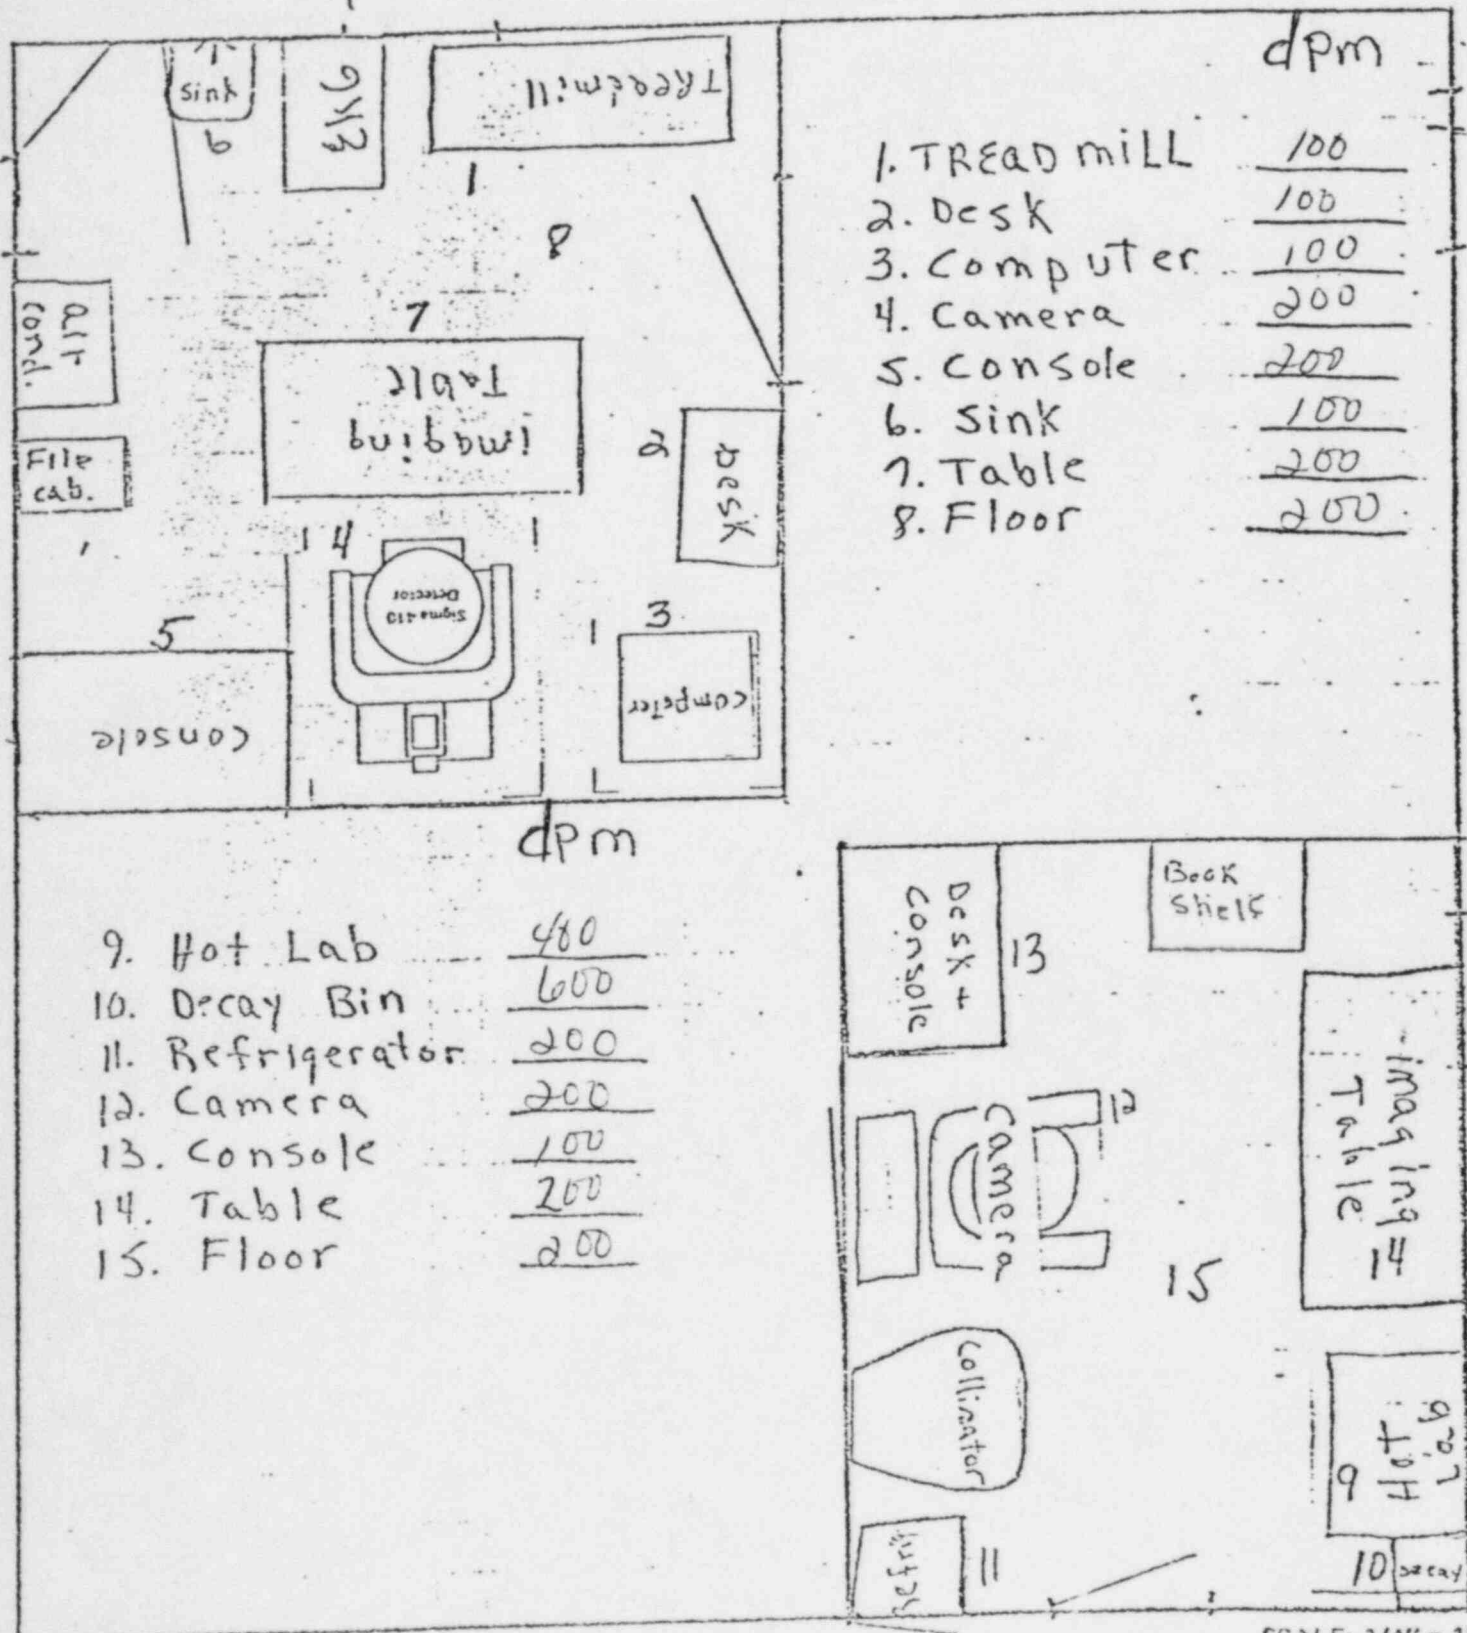 sink
6
Treadmill
1
8
air
cond.
7
imaging
Table
File
cab.
2
Desk
4
Sigma 410
Detector
5
console
3
computer
dpm
1. TREADmiLL 100
2. Desk 100
3. Computer 100
4. Camera 200
5. Console 200
6. Sink 100
7. Table 200
8. Floor 200
dpm
9. Hot Lab
10. Decay Bin 600
11. Refrigerator 200
12. Camera 200
13. Console 100
14. Table 200
15. Floor 200
Desk +
Console
13
Book
Shelf
imaging
Table
14
Camera
12
15
Collimator
Hot
Lab
9
Refrij
11
10